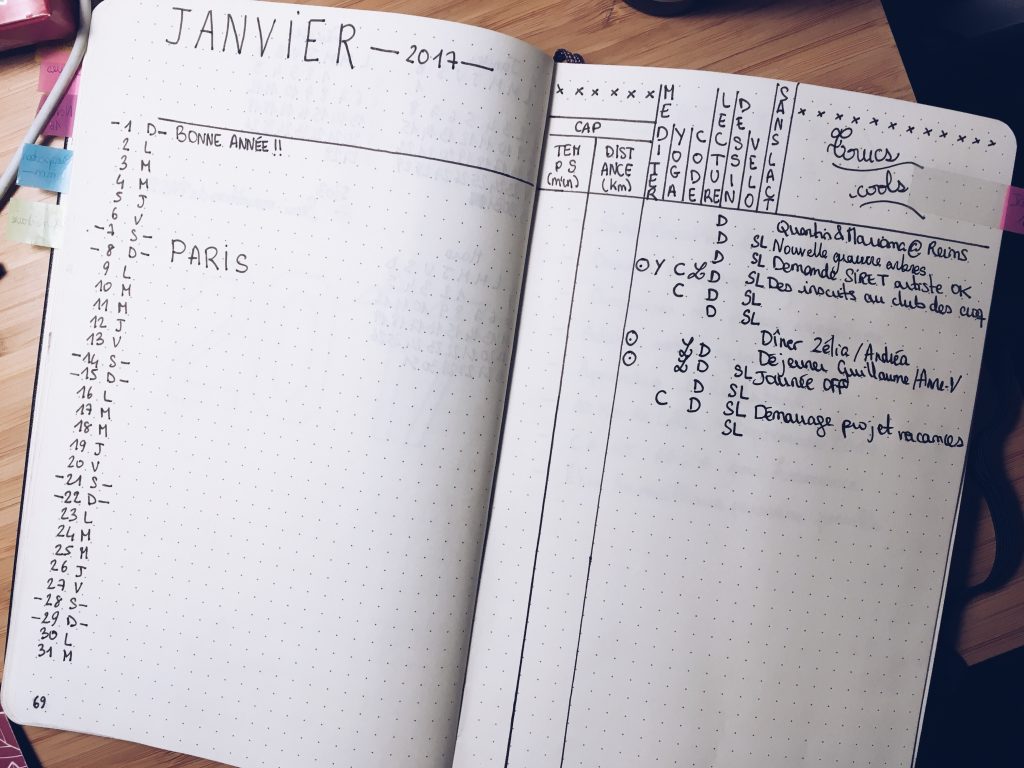 JANVIER — 2017 —
- 1 D - BONNE ANNÉE !!
2 L
3 M
4 M
5 J
6 V
- 7 S -
- 8 D - PARIS
9 L
10 M
11 M
12 J
13 V
- 14 S -
- 15 D -
16 L
17 M
18 M
19 J
20 V
- 21 S -
- 22 D -
23 L
24 M
25 M
26 J
27 V
- 28 S -
- 29 D -
30 L
31 M
69
x x x x x x
CAP
TEMPS (min)
DISTANCE (Km)
MEDITER
YOGA
CODE
LECTURE
DESSIN
VELO
SANS LACT
x x x x x x x x x x x
Trucs
cools
D Quentin & Marioma @ Reims
D SL Nouvelle gravure arbres
D SL Demande SIRET artiste OK
Y C L D SL Des inscrits au club des cinq
C D SL
D SL
Dîner Zélia / Andréa
L D Déjeuner Guillaume / Anne-V
L D SL Journée OFF
D SL
C D SL Démarrage projet vacances
SL